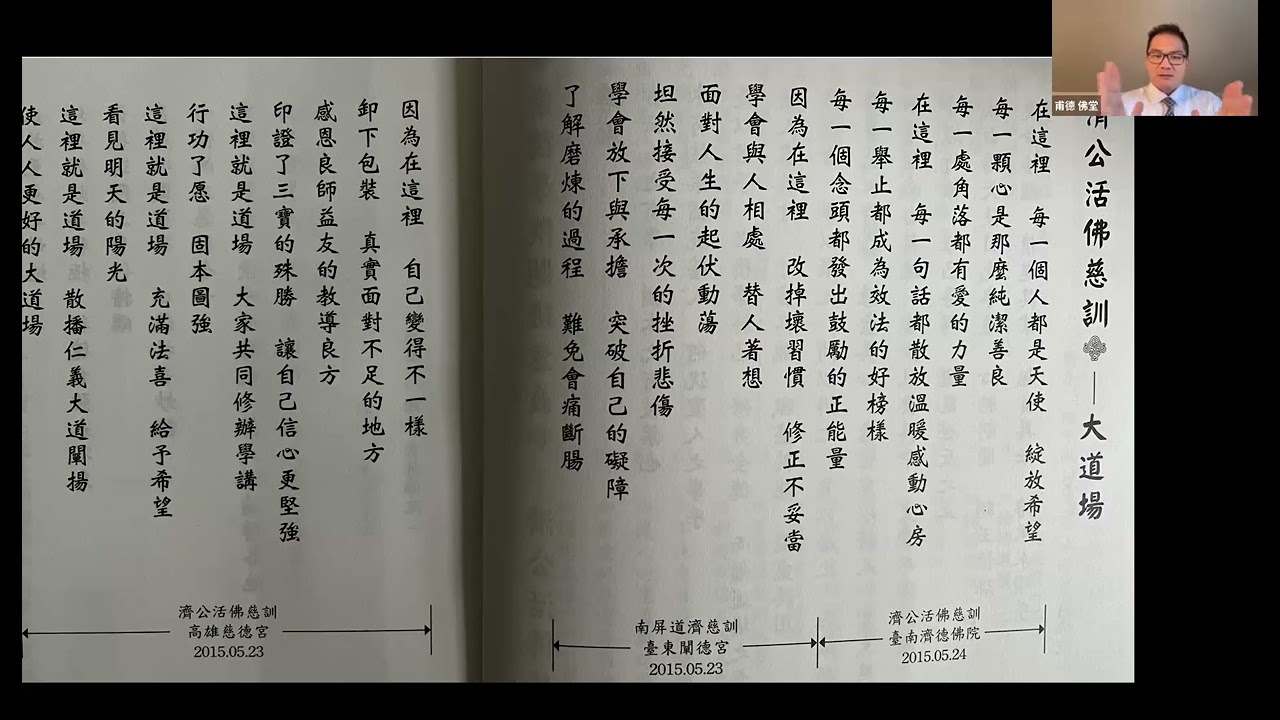 濟公活佛慈訓——大道場
在這裡 每一個人都是天使 綻放希望
每一顆心是那麼純潔善良
每一處角落都有愛的力量
在這裡 每一句話都散放溫暖感動心房
每一舉止都成為效法的好榜樣
每一個念頭都發出鼓勵的正能量
因為在這裡 改掉壞習慣 修正不妥當
學會與人相處 替人著想
面對人生的起伏動蕩
坦然接受每一次的挫折悲傷
學會放下與承擔 突破自己的礙障
了解磨煉的過程 難免會痛斷腸
因為在這裡 自己變得不一樣
卸下包裝 真實面對不足的地方
感恩良師益友的教導良方
印證了三寶的殊勝 讓自己信心更堅強
這裡就是道場 大家共同修辦學講
行功了愿 固本圖強
這裡就是道場 充滿法喜 給予希望
看見明天的陽光
這裡就是道場 散播仁義大道闡揚
使人人更好的大道場
濟公活佛慈訓
臺南濟德佛院
2015.05.24
南屏道濟慈訓
臺東闡德宮
2015.05.23
濟公活佛慈訓
高雄慈德宮
2015.05.23
甫德 佛堂